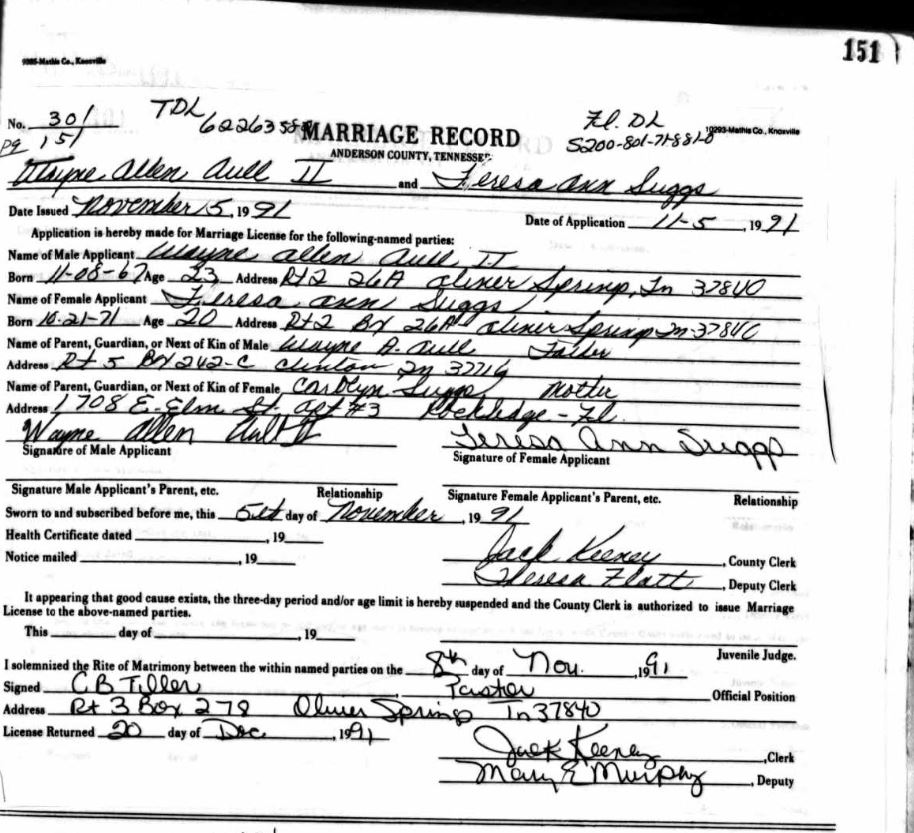 1085-Mathis Co., Knoxville
151
No. 301 TDL 6226358 Fl. DL
pg 151 MARRIAGE RECORD S200-801-71-881-0 10293-Mathis Co., Knoxville
ANDERSON COUNTY, TENNESSEE
Wayne Allen Aull II and Teresa Ann Suggs
Date Issued November 5, 1991 Date of Application 11-5, 1991
Application is hereby made for Marriage License for the following-named parties:
Name of Male Applicant Wayne Allen Aull II
Born 11-08-67 Age 23 Address Rt 2 26A Oliver Springs, Tn 37840
Name of Female Applicant Teresa Ann Suggs
Born 10-21-71 Age 20 Address Rt 2 Bx 26A Oliver Springs Tn 37840
Name of Parent, Guardian, or Next of Kin of Male Wayne A. Aull Father
Address Rt 5 Bx 242-C Clinton Tn 37716
Name of Parent, Guardian, or Next of Kin of Female Carolyn Suggs Mother
Address 1708 E. Elm St. Apt #3 Rockledge - Fl.
Wayne Allen Aull II Teresa Ann Suggs
Signature of Male Applicant Signature of Female Applicant
Signature Male Applicant's Parent, etc. Relationship Signature Female Applicant's Parent, etc. Relationship
Sworn to and subscribed before me, this 5th day of November, 1991
Health Certificate dated , 19 Jack Keeney, County Clerk
Notice mailed , 19 Theresa Flatt, Deputy Clerk
It appearing that good cause exists, the three-day period and/or age limit is hereby suspended and the County Clerk is authorized to issue Marriage
License to the above-named parties.
This day of , 19
Juvenile Judge.
I solemnized the Rite of Matrimony between the within named parties on the 8th day of Nov. 1991
Signed C B Tiller, Pastor Official Position
Address Rt 3 Box 278 Oliver Springs Tn 37840
License Returned 20 day of Dec, 1991
Jack Keeney, Clerk
Mary E Murphy, Deputy